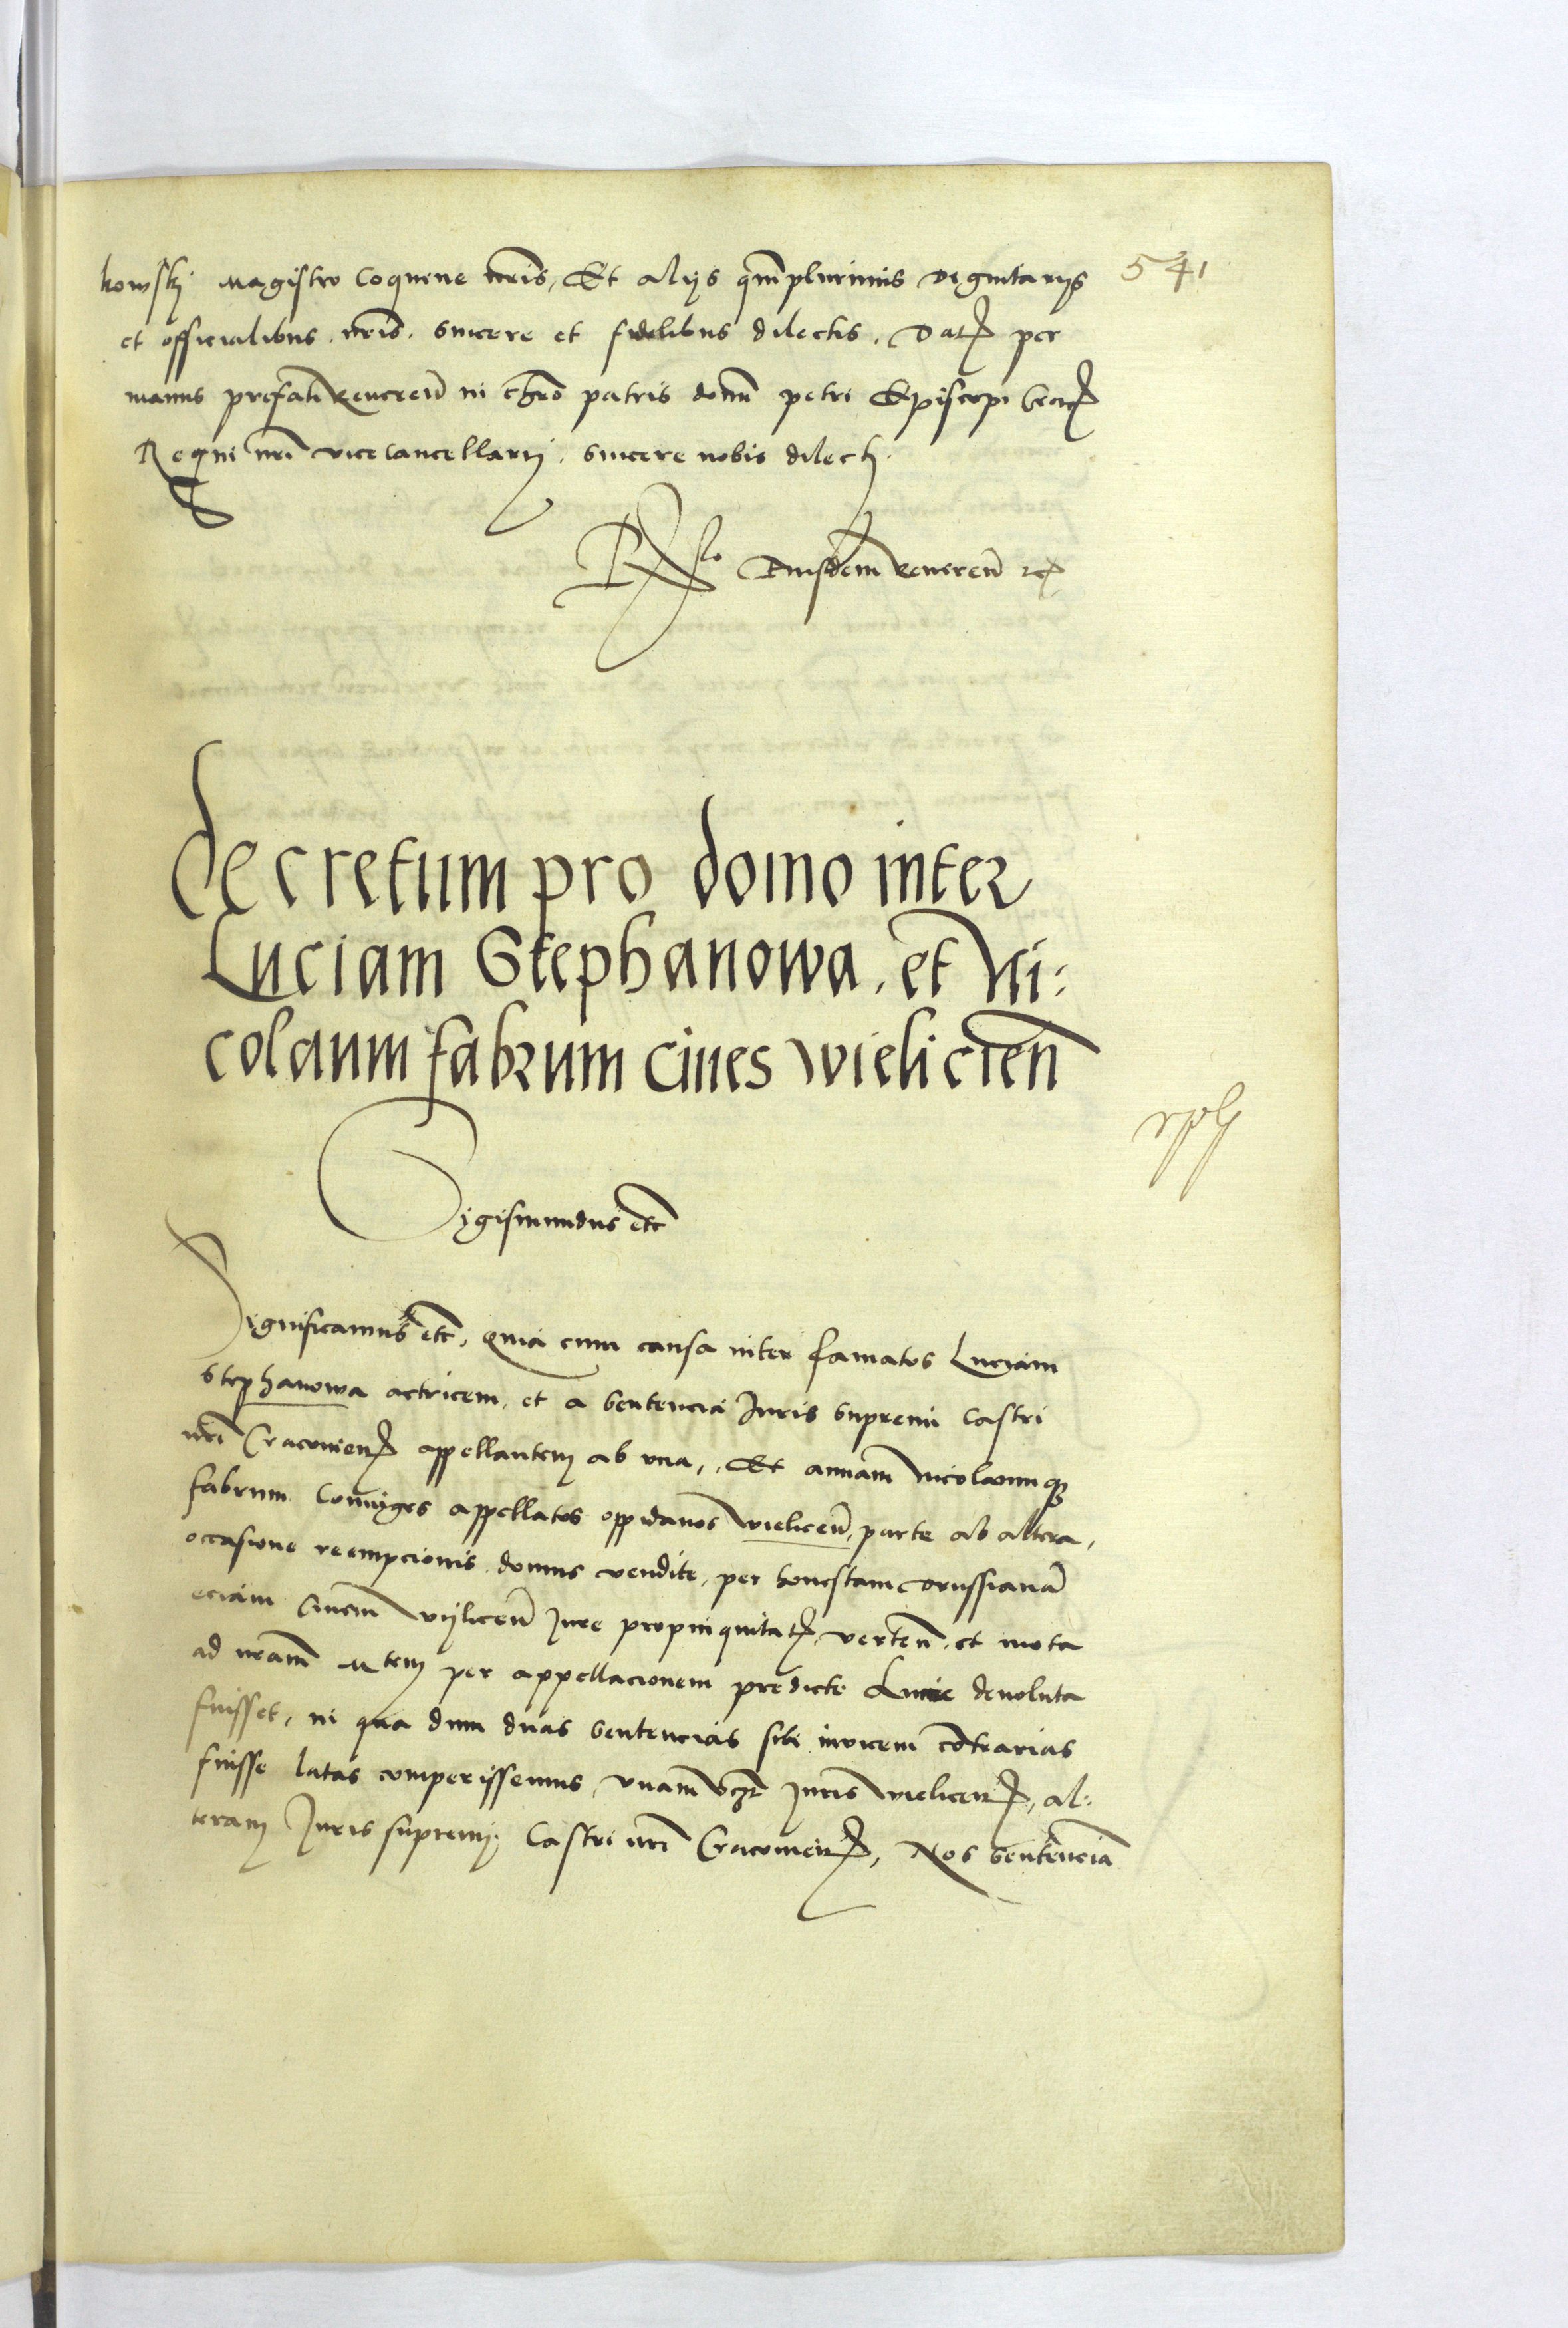 kowskj magistro coquine nr̃is, Et alijs qm̃plurimis dignitarijs
541
et officialibus nr̃is sincere et fidelibus dilectis. Dat per
manus prefati Reueren̄ in chr̃o patris domĩ petri Episcopi Crac
Regni nr̃i vicecancellarij. sincere nobis dilecti.
Eiusdem Reueren̄ etc
decretum pro domo inter
Luciam Stephanowa, et Ni:
colaum fabrum ciues wielicien̄
Sigismundus etc̄
Significamus etc̄, Quia cum causa inter famatos Luciam
Stephanowa actricem, et a Sentencia Juris Supremi Castri
nr̃i Cracouien appellantem ab vna, Et annam Nicolaumq
fabrum Coniuges appellatos oppidanos wielicen̄, parte ab altera,
occasione reempcionis domus vendite, per honestam orussianā
eciam Ciuem vijlicen̄ Jure propinquitat vertен̄ et mota
ad nr̃am Mtem per appellacionem predicte Lucie deuoluta
fuisset, in qua dum duas Sentencias sibi inuicem cōtrarias
fuisse latas comperissemus, vnam vcz̃ Juris wielicen, al:
teram Juris supremj Castri nr̃i Cracouien, Nos Sentenciā